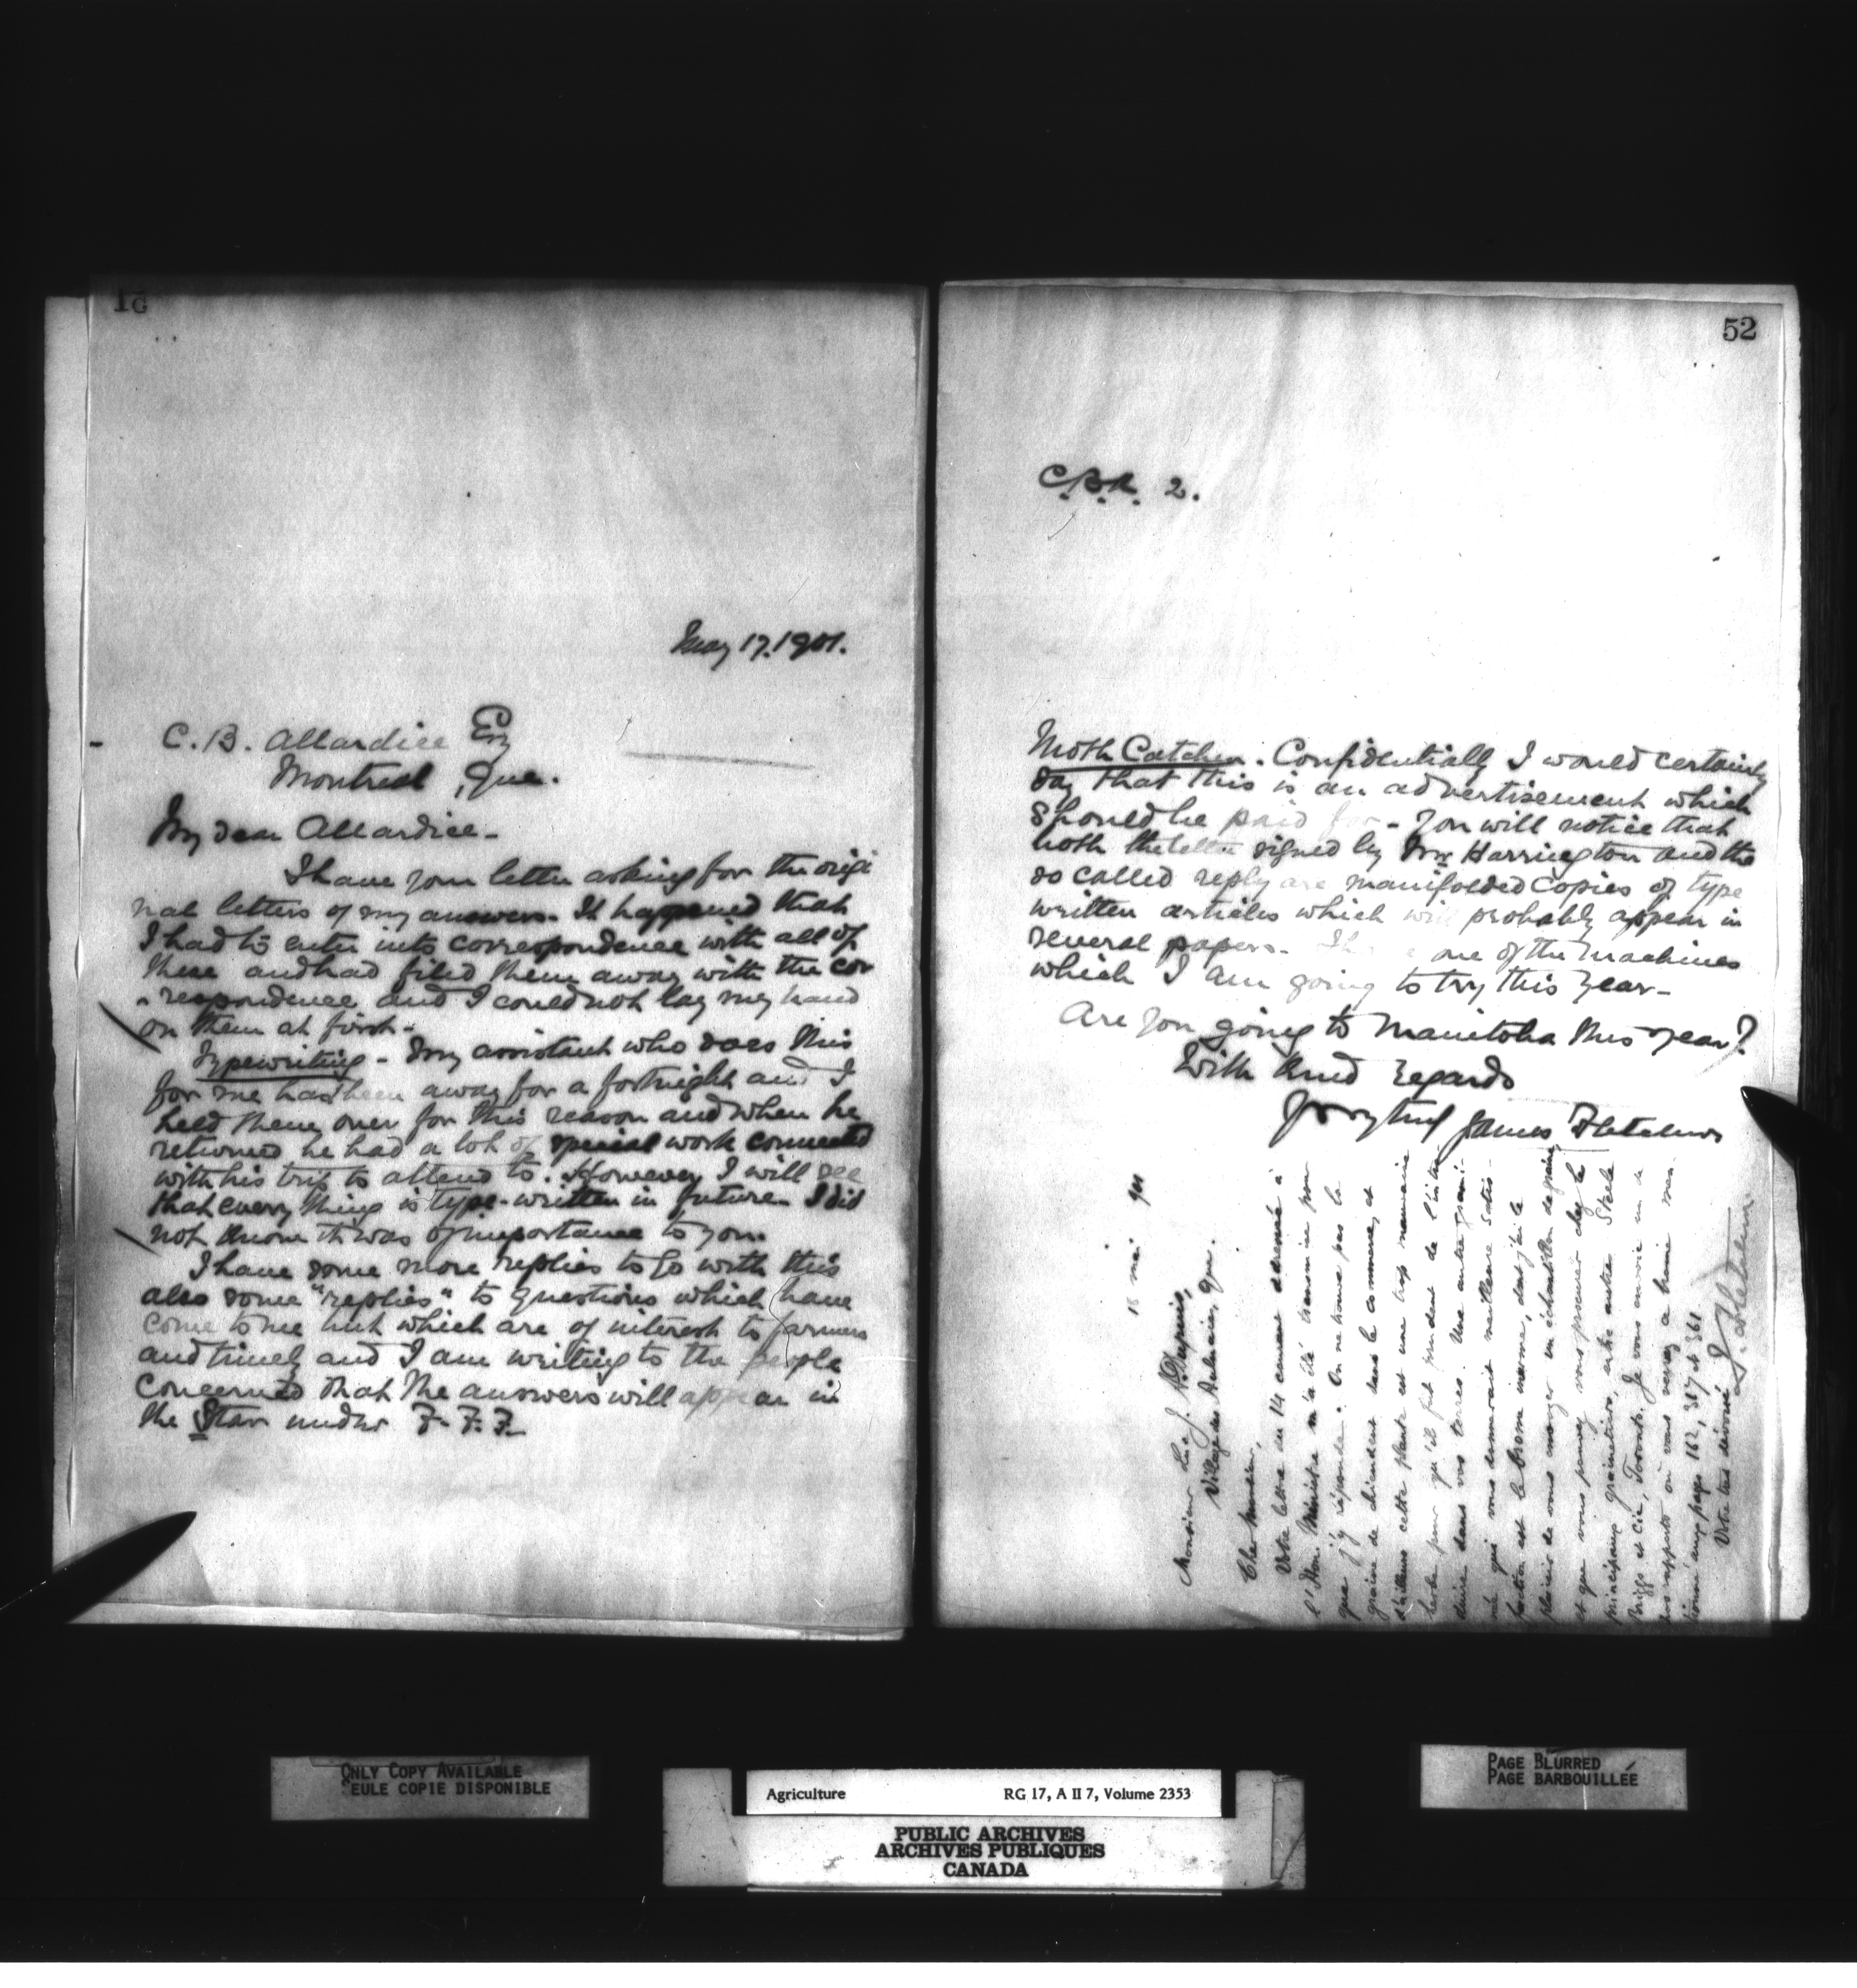 51
May 17. 1901.
C. B. Allardice Esq
Montreal, Que.
My dear Allardice -
I have your letter asking for the origi
nal letters of my answers. It happened that
I had to enter into correspondence with all of
these and had filed them away with the cor
-respondence and I could not lay my hand
on them at first -
Typewriting - My assistant who does this
for me has been away for a fortnight and I
held them over for this reason and when he
returned he had a lot of special work connected
with his trip to attend to. However I will see
that every thing is type-written in future I did
not know it was of importance to you.
I have some more replies to go with this
also some "replies" to questions which have
come to me but which are of interest to farmers
and timely and I am writing to the people
concerned that the answers will appear in
the Star under F. F. F.
52
C.B.A. 2.
Moth Catcher. Confidentially I would certainly
say that this is an advertisement which
should be paid for - You will notice that
both the letter signed by Mr Harrington and the
so called reply are manifolded copies of type
written articles which will probably appear in
several papers. one of the machines
which I am going to try this year -
Are you going to Manitoba this year?
With kind regards
Yrs very truly James Fletcher
15 mai 901
Monsieur Luc J.
Village des Aulnaies, Que.
Cher Monsieur,
Votre lettre du 14 courant adressée à
l'Hon. Ministre m'a été transmise pour
que j'y réponde. On ne trouve pas la
graine de dans le commerce, et
d'ailleurs cette plante est une trop mauvaise
herbe pour qu'il fut prudent de l'intro
duire dans vos terres. Une autre grami-
née qui vous donnerait meilleure satis-
faction est le brome inerme, dont j'ai le
plaisir de vous envoyer un échantillon de graine
et que vous pouvez vous procurer chez les
principaux grainetiers, entre autres Steele
Briggs et Cie, Toronto. Je vous envoie un de
nos rapports où vous verrez
aux pages 162, 357 et 361
Votre très dévoué
J. Fletcher
ONLY COPY AVAILABLE
SEULE COPIE DISPONIBLE
Agriculture RG 17, A II 7, Volume 2353
PUBLIC ARCHIVES
ARCHIVES PUBLIQUES
CANADA
PAGE BLURRED
PAGE BARBOUILLÉE